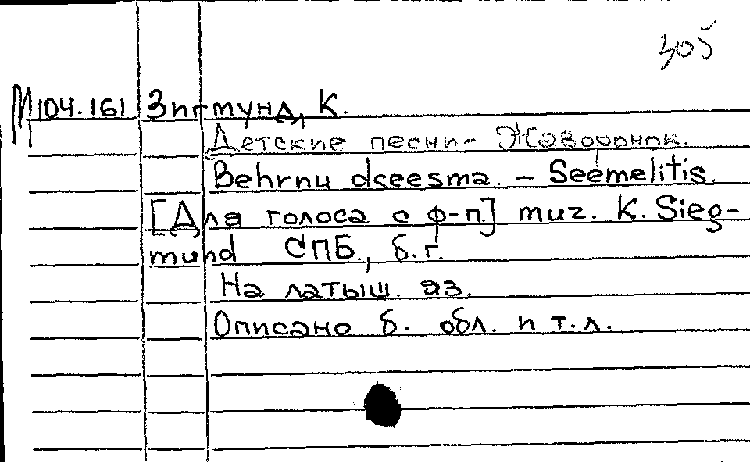 305
М104.161 Зигмунд, К.
Детские песни- Жаворонок.
Behrnu dseesma. – Seemelitis.
[Для голоса с ф-п] muz. K. Sieg-
mund СПБ., б.г.
На латыш. яз.
Описано б. обл. и т.л.